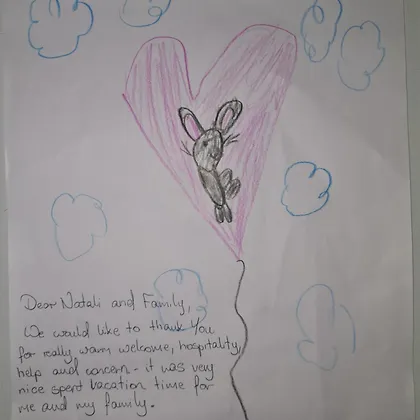 Dear Natali and Family,
We would like to thank You
for really warm welcome, hospitality,
help and concern - it was very
nice spent vacation time for
me and my family.